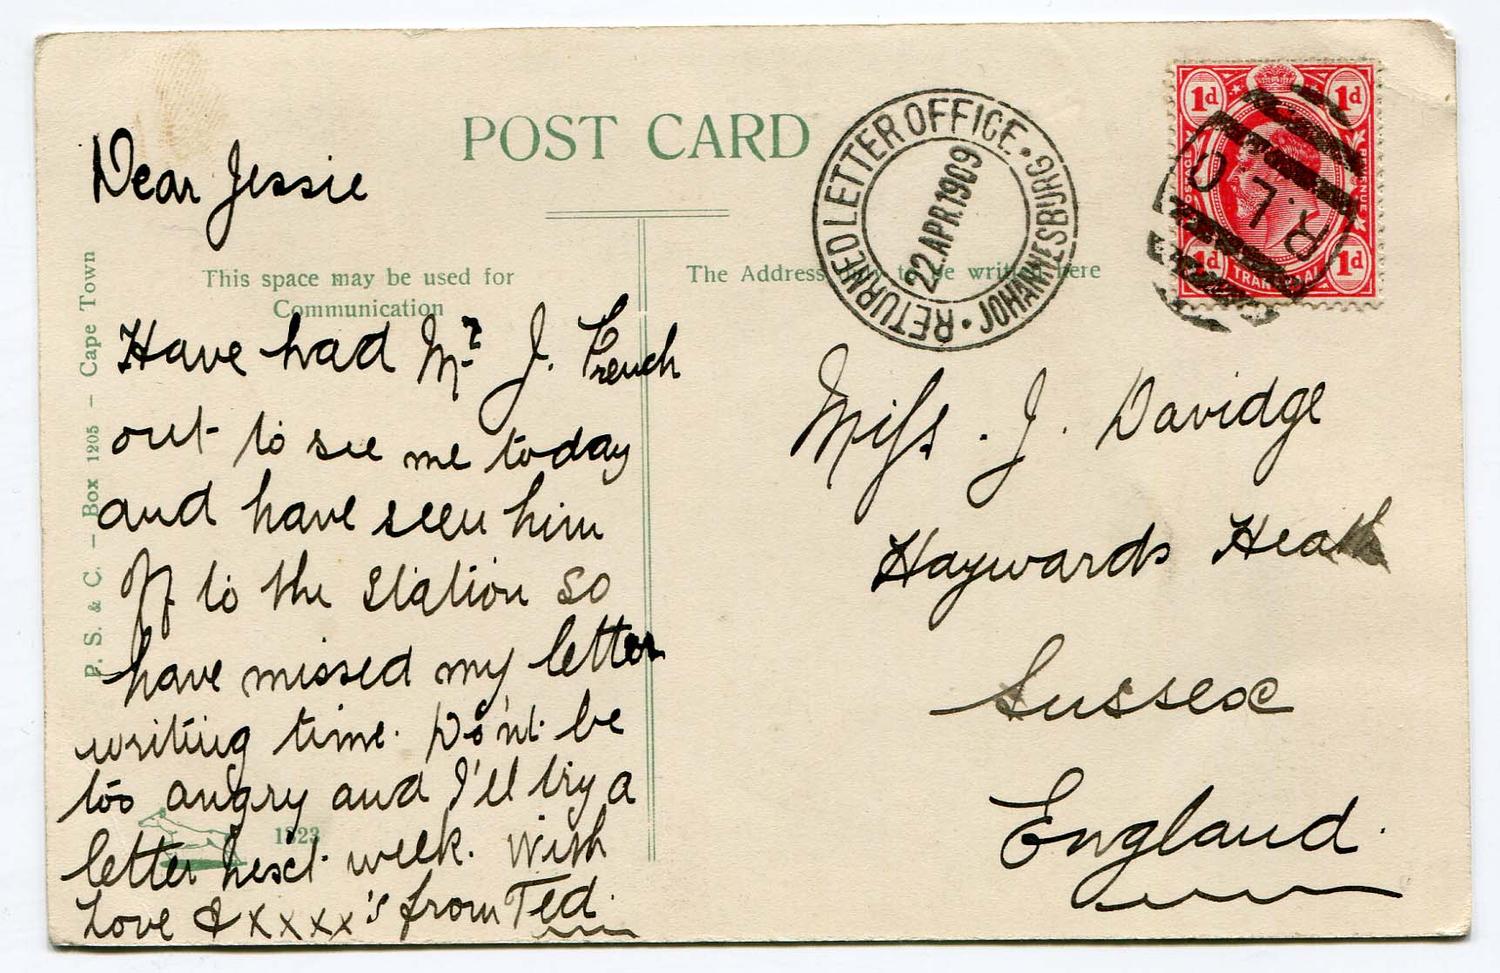 POST CARD
This space may be used for
Communication
The Address only to be written here
RETURNED LETTER OFFICE · JOHANNESBURG ·
22.APR.1909
1d 1d
POSTAGE REVENUE
R.L.O
1d 1d
TRANSVAAL
P. S. & C. – Box 1205 – Cape Town
Dear Jessie
Have had Mr J. French
out to see me today
and have seen him
off to the station so
have missed my letter
writing time. Don't be
too angry and I'll try a
letter next week. With
love & xxxx's from Ted.
Miss. J. Davidge
Haywards Heath
Sussex
England.